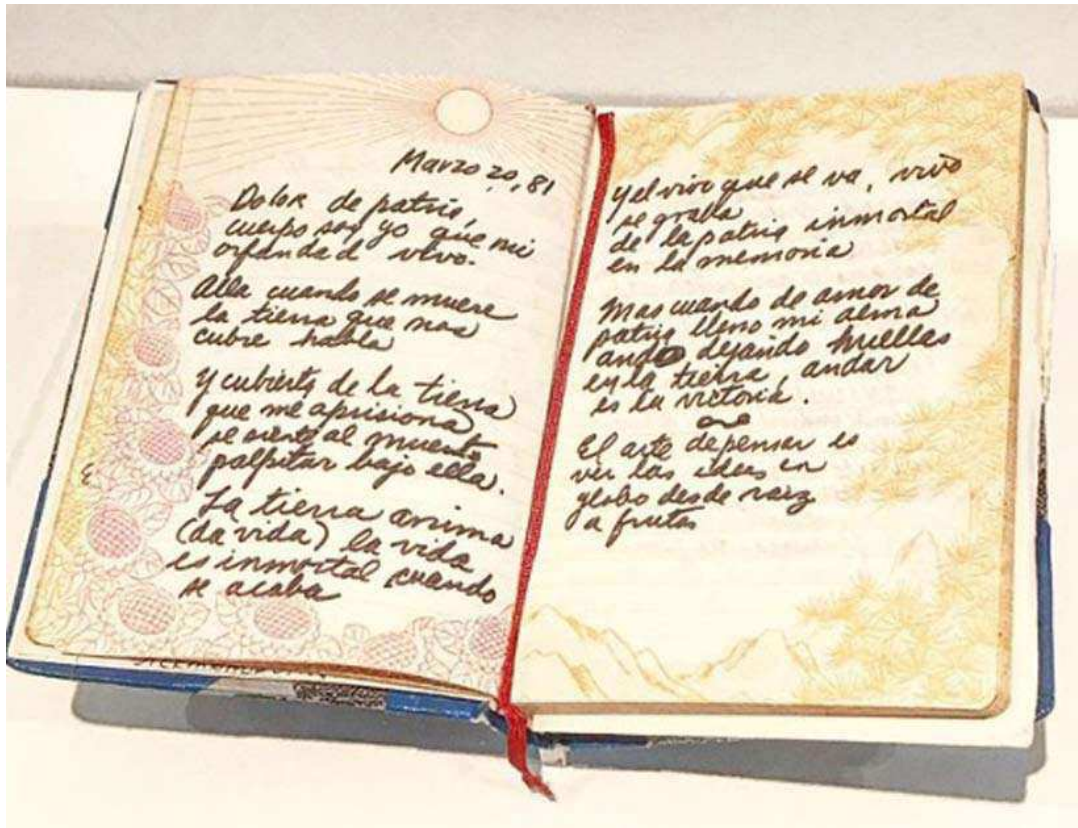 Marzo 20, 81
Dolor de patria,
cuerpo soy yo que mi
orfandad vivo.
Alla cuando se muere
la tierra que nos
cubre habla
Y cubierta de la tierra
que me aprisiona
se siente al muerto
palpitar bajo ella.
La tierra anima
(da vida) la vida
es inmortal cuando
se acaba
y el vivo que se va, vivo
se graba
de la patria inmortal
en la memoria
Mas cuando de amor de
patria lleno mi alma
ando dejando huellas
en la tierra, andar
es la victoria.
El arte de pensar es
ver las ideas en
globo desde raiz
a frutas